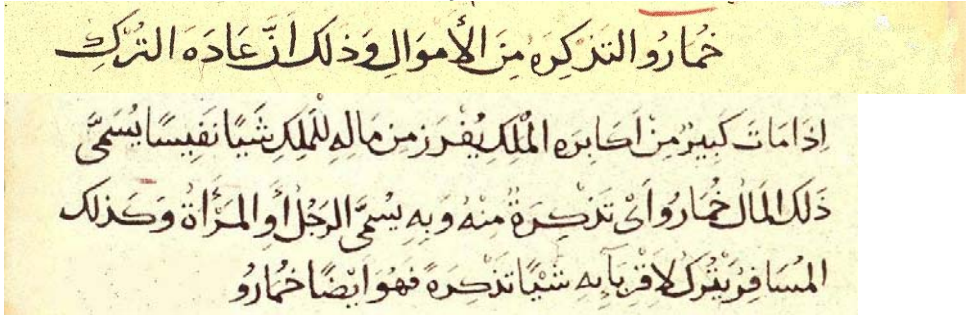 خُمارُو التَذكِرَه مِنَ الأَموَالِ وَذَلك اَنَّ عَادَه التُركِ
اِذَا مَاتَ كَبِيرٌ مِنْ اَكَابِرَه المُلكِ يُفْرَز مِن مَالِهِ لِلْمَلِكِ شَيئًا نَفِيسًا يُسَمَّى
ذَلكَ المَال خُمَارُو اَىْ تَذكِرَةٌ مِنْهُ وَبِهِ يُسَمَّى الرَجُل أوِ المَرْأَة وَكَذلك
المُسَافِرُ يَتْرُكُ لِاَقْرِبَآئِهِ شَيْئًا تَذْكِرَةً فَهُوَ اَيْضًا خُمارُو